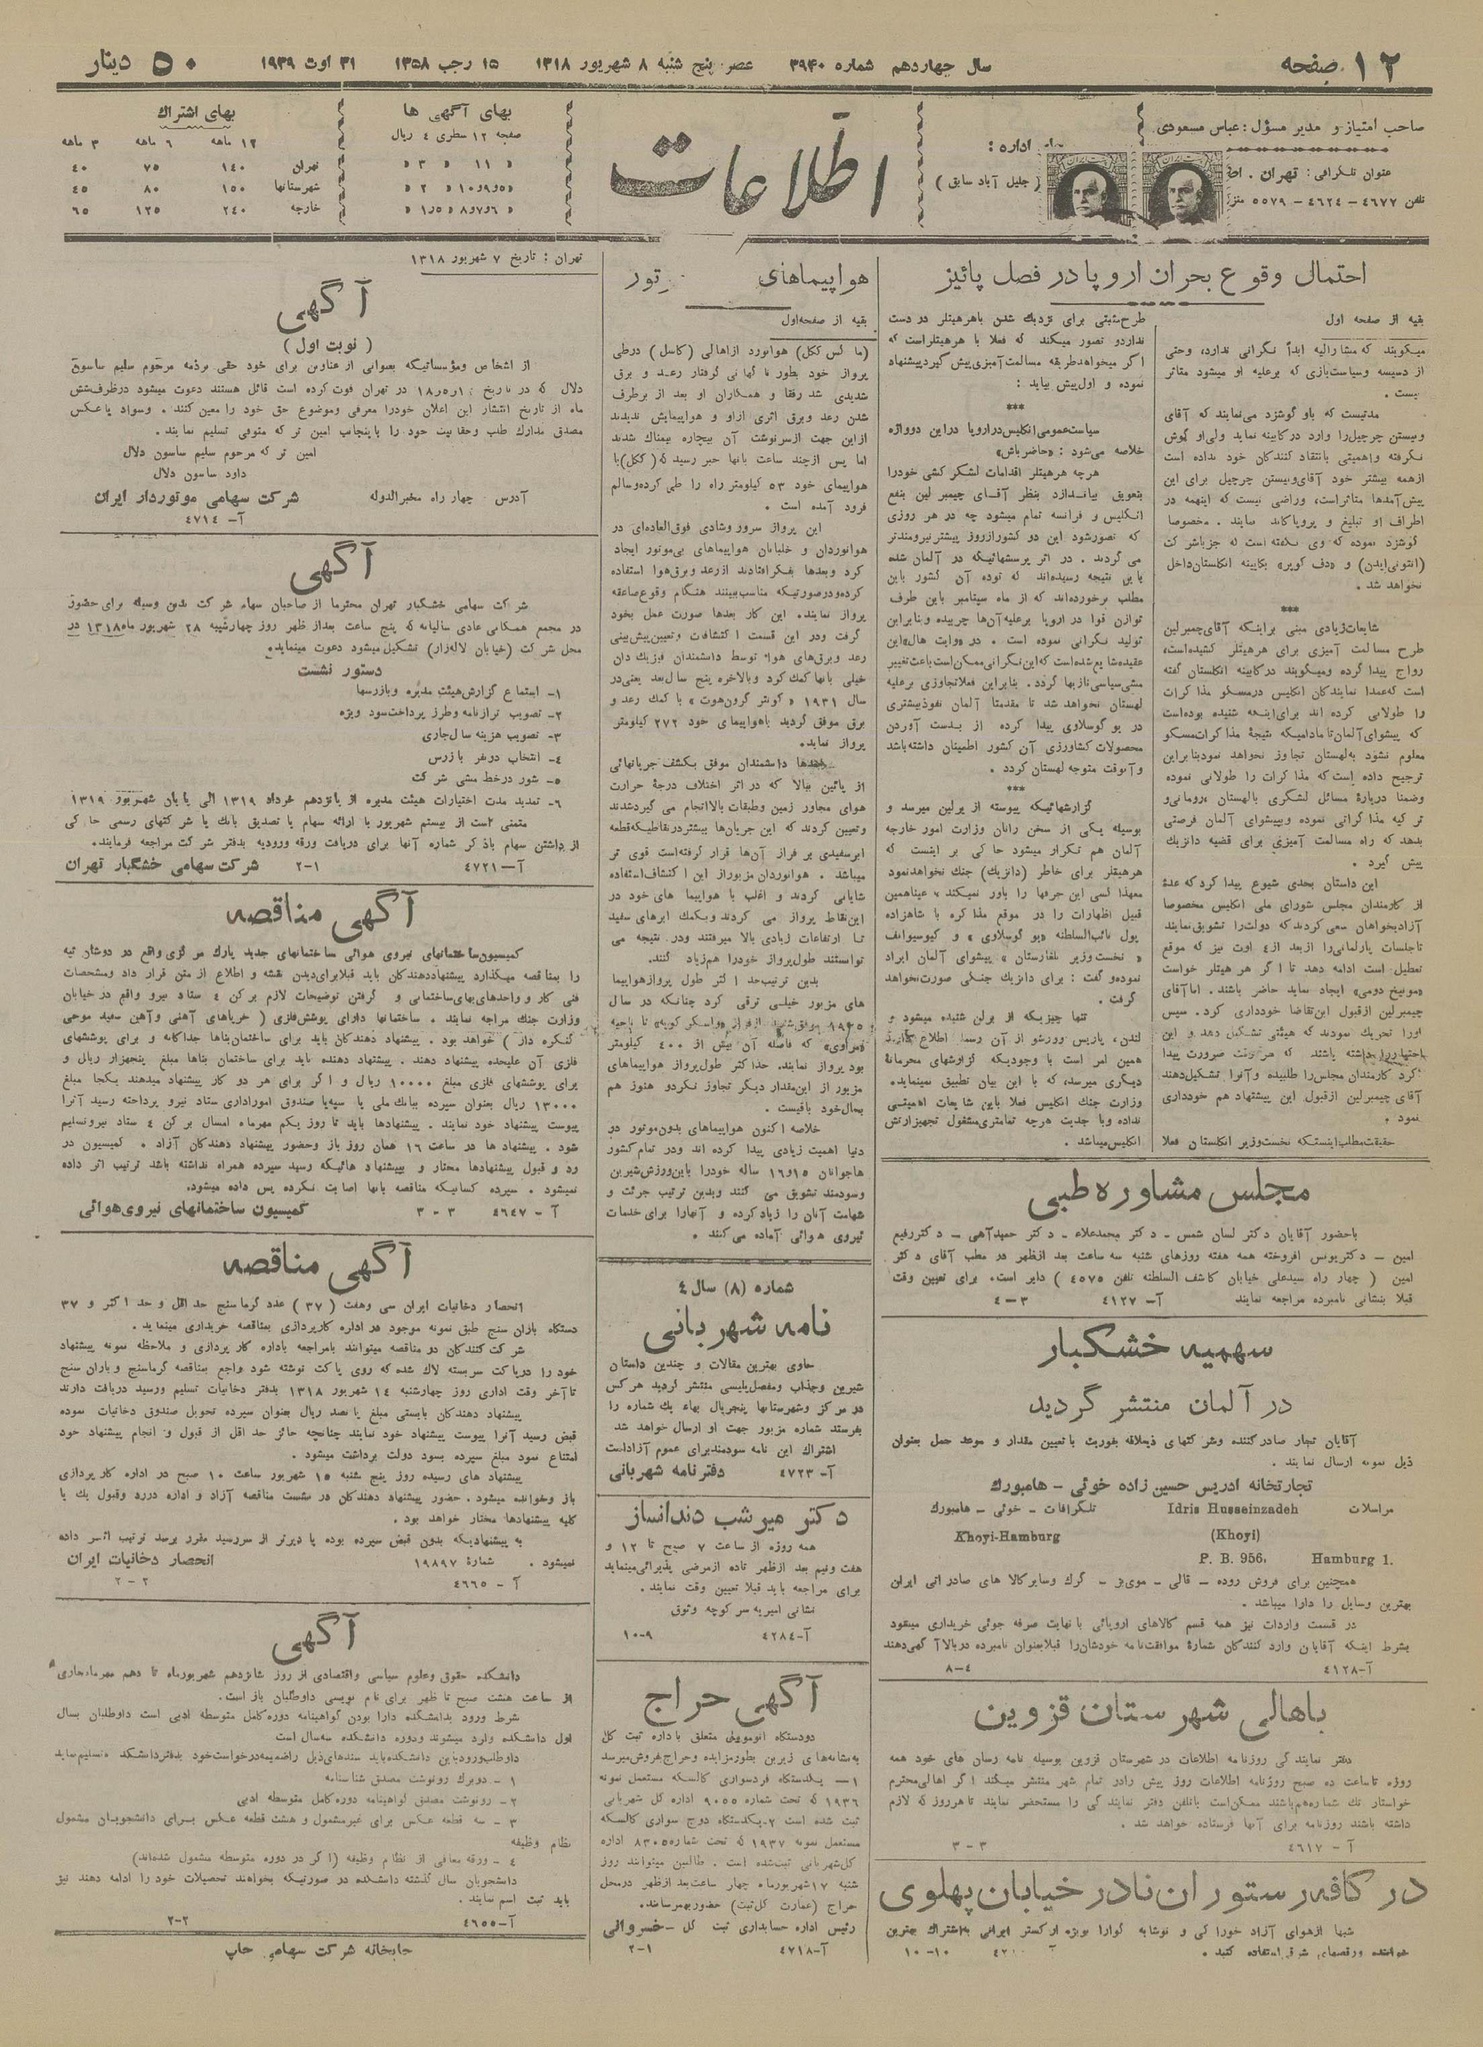 ۱۲ صفحه
سال چهاردهم شماره ۳۹۴۰ عصر پنج شنبه ۸ شهریور ۱۳۱۸ ۱۵ رجب ۱۳۵۸ ۳۱ اوت ۱۹۳۹
۵۰ دینار
صاحب امتیاز و مدیر مسؤل : عباس مسعودی
عنوان تلگرافی : تهران .
تلفن ۴۶۷۷ – ۴۶۲۴ – ۵۵۷۹
اداره :
( جلیل آباد سابق )
اطلاعات
بهای آگهی ها
صفحه ۱۲ سطری ۴ ریال
» ۱۱ » ۳ »
بهای اشتراك
۱۲ ماهه ۶ ماهه ۳ ماهه
تهران ۱۴۰ ۷۵ ۴۰
شهرستانها ۱۵۰ ۸۰ ۴۵
خارجه ۲۴۰ ۱۲۵ ۶۵
احتمال وقوع بحران اروپا در فصل پائیز
بقیه از صفحه اول
میگویند که مشارالیه ابداً نگرانی ندارد، وحتی
از دسیسه وسیاست‌بازی که برعلیه او میشود متاثر
نیست .
مدتیست که باو گوشزد می‌نمایند که آقای
وینستن چرچیل را وارد در کابینه نماید ولی او گوش
نگرفته واهمیتی بانتقاد کنندگان خود نداده است
ازهمه بیشتر خود آقای وینستن چرچیل برای این
پیش‌آمدها متاثر است، وراضی نیست که اینهمه در
اطراف او تبلیغ و پروپاکاند نمایند . مخصوصا
گوشزد نموده که وی نگفته است که جز باشرکت
(انتونی‌ایدن) و «دف کوپر» بکابینه انگلستان داخل
نخواهد شد .
***
شایعات زیادی مبنی براینکه آقای چمبرلین
طرح مسالمت آمیزی برای هرهیتلر کشیده است،
رواج پیدا کرده ومیگویند در کابینه انگلستان گفته
است که عمدا نمایندگان انگلیس درمسکو مذاکرات
را طولانی کرده اند برای اینکه شنیده بوده است
که پیشوای آلمان تا مادامیکه نتیجهٔ مذاکرات مسکو
معلوم نشود به لهستان تجاوز نخواهد نمود بنا براین
ترجیح داده است که مذاکرات را طولانی نموده
وضمنا دربارهٔ مسائل لشگری بالهستان «رومانی و
ترکیه مذاکراتی نموده وبپیشوای آلمان فرصتی
بدهد که راه مسالمت آمیزی برای قضیه دانزیك
پیش گیرد .
این داستان بحدی شیوع پیدا کرد که عدهٔ
از کارمندان مجلس شورای ملی انگلیس مخصوصا
آزادیخواهان سعی کردند که دولت را تشویق نمایند
تا جلسات پارلمانی را از بعد از ۴ اوت نیز که موقع
تعطیل است ادامه دهد تا اگر هر هیتلر خواست
«مونیخ دومی» ایجاد نماید حاضر باشند. اما آقای
چیمبرلین از قبول این تقاضا خودداری کرد. سپس
اورا تحریك نمودند که هیئتی تشکیل دهد و این
کرد کارمندان مجلس را طلبیده و آنرا تشکیل دهند
آقای چیمبرلین از قبول این پیشنهاد هم خودداری
نمود .
حقیقت مطلب اینستکه نخست وزیر انگلستان فعلا
طرح مثبتی برای نزدیك شدن باهرهیتلر در دست
ندارد و تصور میکند که فعلا با هرهیتلر است که
اگر میخواهد طریقه مسالمت آمیزی پیش گیرد پیشنهاد
نموده و اول پیش بیاید :
***
سیاست عمومی انگلیس در اروپا دراین دو واژه
خلاصه می‌شود : «حاضر باش»
هرچه هرهیتلر اقدامات لشکر کشی خود را
بتعویق بیاندازد بنظر آقای چیمبر لین بنفع
انگلیس و فرانسه تمام میشود چه در هر روزی
که تصور شود این دو کشور از روز پیشتر نیرومندتر
می گردند . در اثر پرسشهائیکه در آلمان شده
باین نتیجه رسیده‌اند که توده آن کشور باین
مطلب برخورده‌اند که از ماه سپتامبر باین طرف
توازن قوا در اروپا برعلیه آن‌ها چربیده و بنا براین
تولید نگرانی نموده است . در «وایت هال» این
عقیده شایع شده است که این نگرانی ممکن است باعث تغییر
مشی سیاسی نازیها گردد. بنا براین فعلا تجاوزی برعلیه
لهستان نخواهد شد تا مقدمتا آلمان نفوذ بیشتری
در یوگوسلاوی پیدا کرده از بدست آوردن
محصولات کشاورزی آن کشور اطمینان داشته باشد
و آنوقت متوجه لهستان گردد .
***
گزارشهائیکه پیوسته از برلین میرسد و
بوسیله یکی از سخن رانان وزارت امور خارجه
آلمان هم تکرار میشود حاکی بر اینست که
هرهیتلر برای خاطر (دانزیك) جنك نخواهد نمود
معهذا کسی این حرفها را باور نمیکند، عینا همین
قبیل اظهارات را در موقع مذاکره با شاهزاده
پول نائب السلطنه «یوگوسلاوی» و کیوسیوانف
« نخست وزیر بلغارستان » پیشوای آلمان ایراد
نموده و گفت : برای دانزیك جنگی صورت نخواهد
گرفت .
تنها چیزیکه از برلن شنیده میشود و
لندن، پاریس و ورشو از آن رسما اطلاع
همین امر است با وجودیکه گزارشهای محرمانهٔ
دیگری میرسد، که با این بیان تطبیق نمینماید.
وزارت جنك انگلیس فعلا باین شایعات اهمیتی
نداده و با جدیت هرچه تمامتری مشغول تجهیز ارتش
انگلیس میباشد .
مجلس مشاوره طبی
باحضور آقایان دکتر لسان شمس – دکتر محمد علاء – دکتر حمید آهی – دکتر رفیع
امین – دکتر یونس افروخته همه هفته روزهای شنبه سه ساعت بعد از ظهر در مطب آقای دکتر
امین ( چهار راه سیدعلی خیابان کاشف السلطنه تلفن ۴۵۷۵ ) دایر است. برای تعیین وقت
قبلا بنشانی نامبرده مراجعه نمایند آ– ۴۱۲۷ ۳–۴
سهمیه خشکبار
در آلمان منتشر گردید
آقایان تجار صادر کننده وشرکتهای ذیعلاقه بفوریت با تعیین مقدار و موعد حمل بعنوان
ذیل نمونه ارسال نمایند .
تجارتخانه ادریس حسین زاده خوئی – هامبورك
مراسلات Idris Husseinzadeh تلگرافات – خوئی – هامبورك
(Khoyi) Khoyi-Hamburg
P. B. 956. Hamburg 1.
همچنین برای فروش روده – قالی – موی بز – گرك وسایر کالا های صادراتی ایران
بهترین وسایل را دارا میباشد .
در قسمت واردات نیز همه قسم کالاهای اروپائی با نهایت صرفه جوئی خریداری مینمود
بشرط اینکه آقایان وارد کنندگان شمارهٔ موافقت‌نامه خودشان را قبلا بعنوان نامبرده در بالا آگهی دهند
آ–۴۱۲۸ ۴–۸
باهالی شهرستان قزوین
دفتر نمایندگی روزنامه اطلاعات در شهرستان قزوین بوسیله نامه رسان های خود همه
روزه تا ساعت ده صبح روزنامه اطلاعات روز پیش را در تمام شهر منتشر میکند اگر اهالی محترم
خواستار تك شماره هم باشند ممکن است با تلفن دفتر نمایندگی را مستحضر نمایند تا هر روز که لازم
داشته باشند روزنامه برای آنها فرستاده خواهد شد .
آ – ۴۶۱۷ ۳–۳
در کافه رستوران نادر خیابان پهلوی
شبها از هوای آزاد خوراکی و نوشابه گوارا بویژه ارکستر ایرانی باشتراك بهترین
خواننده و رقصهای شرقی استفاده کنید . ۱۰–۱۰
هواپیماهای
بقیه از صفحه اول
(ماکس ککل) هوانورد از اهالی (کاسل) در طی
پرواز خود بطور ناگهانی گرفتار رعد و برق
شدیدی شد رفقا و همکاران او بعد از برطرف
شدن رعد و برق اثری از او و هواپیمایش ندیدند
از این جهت از سرنوشت آن بیچاره بیمناك شدند
اما پس از چند ساعت بآنها خبر رسید که (ککل) با
هواپیمای خود ۵۳ کیلومتر راه را طی کرده و سالم
فرود آمده است .
این پرواز سرور وشادی فوق العاده‌ای در
هوانوردان و خلبانان هواپیماهای بی‌موتور ایجاد
کرد و بعدها بفکر افتادند از رعد و برق هوا استفاده
کرده و در صورتیکه مناسب ببینند هنگام وقوع صاعقه
پرواز نمایند. این کار بعدها صورت عمل بخود
گرفت ودر این قسمت اکتشافات و تعیین پیش‌بینی
رعد و برق‌های هوا توسط دانشمندان فیزیك دان
خیلی بآنها کمك کرد و بالاخره پنج سال بعد یعنی در
سال ۱۹۳۱ «گونتر گرون‌هوف» با کمك رعد و
برق موفق گردید باهواپیمای خود ۲۷۲ کیلومتر
پرواز نماید.
بعدها دانشمندان موفق بکشف جریانهائی
از پائین ببالا که در اثر اختلاف درجهٔ حرارت
هوای مجاور زمین وطبقات بالا انجام می گیرد شدند
و تعیین کردند که این جریان‌ها بیشتر در نقاطیکه قطعه
ابر سفیدی بر فراز آن‌ها قرار گرفته است قوی تر
میباشد . هوانوردان مزبور از این اکتشاف استفاده
شایانی کردند و اغلب با هواپیما های خود در
این نقاط پرواز می کردند و بکمك ابرهای سفید
تا ارتفاعات زیادی بالا میرفتند ودر نتیجه می
توانستند طول پرواز خودرا هم زیاد کنند.
بدین ترتیب حد اکثر طول پرواز هواپیما
های مزبور خیلی ترقی کرد چنانکه در سال
بود پرواز نمایند. حد اکثر طول پرواز هواپیماهای
مزبور از این مقدار دیگر تجاوز نکرد و هنوز هم
بحال خود باقیست .
خلاصه اکنون هواپیماهای بدون موتور در
دنیا اهمیت زیادی پیدا کرده اند و در تمام کشور
ها جوانان ۱۵ و ۱۶ ساله خودرا باین ورزش شیرین
وسودمند تشویق می کنند و بدین ترتیب جرئت و
شهامت آنان را زیاد کرده و آنهارا برای خدمات
نیروی هوائی آماده می‌کنند .
شماره (۸) سال ۴
نامه شهربانی
حاوی بهترین مقالات و چندین داستان
شیرین وجذاب ومفصل پلیسی منتشر گردید هر کس
در مرکز وشهرستانها پنج ریال بهاء یك شماره را
بفرستد شماره مزبور جهت او ارسال خواهد شد
اشتراك این نامه سودمند برای عموم آزاد است
آ– ۴۷۲۳ دفتر نامه شهربانی
دکتر میرشب دندانساز
همه روزه از ساعت ۷ صبح تا ۱۲ و
هفت ونیم بعد از ظهر تا ده از مرضی پذیرائی مینماید
برای مراجعه باید قبلا تعیین وقت نمایند .
نشانی امیریه سر کوچه وثوق
آ–۴۲۸۴ ۹–۱۰
آگهی حراج
دو دستگاه اتومبیل متعلق باداره ثبت کل
به نشانه‌های زیرین بطور مزایده وحراج فروش میرسد
۱ – یکدستگاه فرد سواری کالسکه مستعمل نمونه
۱۹۳۶ که تحت شماره ۹۰۵۵ اداره کل شهربانی
ثبت شده است ۲–یکدستگاه دوج سواری کالسکه
مستعمل نمونه ۱۹۳۷ که تحت شماره ۸۳۰۵ اداره
کل شهربانی ثبت شده است . طالبین میتوانند روز
شنبه ۱۷ شهریور ماه چهار ساعت بعد از ظهر در محل
حراج (عمارت کل ثبت) حضور بهم رسانند.
رئیس اداره حسابداری ثبت کل – خسروانی
آ–۴۷۱۸ ۱–۲
تهران : تاریخ ۷ شهریور ۱۳۱۸
آگهی
( نوبت اول )
از اشخاص ومؤسساتیکه بعنوانی از عناوین برای خود حقی برذمه مرحوم سلیم ساسون
دلال که در تاریخ در تهران فوت کرده است قائل هستند دعوت میشود در ظرف شش
ماه از تاریخ انتشار این اعلان خودرا معرفی وموضوع حق خود را معین کنند . وسواد یا عکس
مصدق مدارك طلب وحقانیت خود را باینجانب امین ترکه متوفی تسلیم نمایند .
امین ترکه مرحوم سلیم ساسون دلال
داود ساسون دلال
آدرس – چهار راه مخبرالدوله شرکت سهامی موتوردار ایران
آ– ۴۷۱۴
آگهی
شرکت سهامی خشگبار تهران محترما از صاحبان سهام شرکت بدین وسیله برای حضور
در مجمع همگانی عادی سالیانه که پنج ساعت بعد از ظهر روز چهارشنبه ۲۸ شهریور ماه ۱۳۱۸ در
محل شرکت (خیابان لاله‌زار) تشکیل میشود دعوت مینماید.
دستور نشست
۱– استماع گزارش هیئت مدیره وبازرسها
۲– تصویب ترازنامه وطرز پرداخت سود ویژه
۳– تصویب هزینه سال جاری
۴– انتخاب دو نفر بازرس
۵– شور در خط مشی شرکت
۶– تمدید مدت اختیارات هیئت مدیره از پانزدهم خرداد ۱۳۱۹ الی پایان شهریور ۱۳۱۹
متمنی است از بیستم شهریور با ارائه سهام یا تصدیق بانك یا شرکتهای رسمی حاکی
از داشتن سهام باذکر شماره آنها برای دریافت ورقه ورودیه بدفتر شرکت مراجعه فرمایند.
آ–۴۷۲۱ ۱–۲ شرکت سهامی خشگبار تهران
آگهی مناقصه
کمیسیون ساختمانهای نیروی هوائی ساختمانهای جدید پارك مرکزی واقع در دوشان تپه
را بمناقصه میگذارد پیشنهاد دهندگان باید قبلا برای دیدن نقشه و اطلاع از متن قرار داد ومشخصات
فنی کار و واحدهای بهای ساختمانی و گرفتن توضیحات لازم برکن ۴ ستاد نیرو واقع در خیابان
وزارت جنك مراجعه نمایند . ساختمانها دارای پوشش فلزی ( خرپاهای آهنی وآهن سفید موجی
کنگره دار ) خواهد بود . پیشنهاد دهندگان باید برای ساختمان بناها جداگانه و برای پوششهای
فلزی آن علیحده پیشنهاد دهند . پیشنهاد دهنده باید برای ساختمان بناها مبلغ پنجهزار ریال و
برای پوششهای فلزی مبلغ ۱۰۰۰۰ ریال و اگر برای هر دو کار پیشنهاد میدهند یکجا مبلغ
۱۳۰۰۰ ریال بعنوان سپرده ببانك ملی یا سپه یا صندوق امور اداری ستاد نیرو پرداخته رسید آنرا
پیوست پیشنهاد خود نمایند . پیشنهادها باید تا روز یکم مهرماه امسال برکن ۴ ستاد نیرو تسلیم
شود . پیشنهاد ها در ساعت ۱۶ همان روز باز وحضور پیشنهاد دهندگان آزاد . کمیسیون در
رد و قبول پیشنهادها مختار و بپیشنهاد هائیکه رسید سپرده همراه نداشته باشد ترتیب اثر داده
نمیشود . سپرده کسانیکه مناقصه بآنها اصابت نکرده پس داده میشود.
آ – ۴۶۴۷ ۳ – ۳ کمیسیون ساختمانهای نیروی هوائی
آگهی مناقصه
انحصار دخانیات ایران سی وهفت ( ۳۷ ) عدد گرماسنج حداقل و حداکثر و ۳۷
دستگاه باران سنج طبق نمونه موجود در اداره کارپردازی بمناقصه خریداری مینماید .
شرکت کنندگان در مناقصه میتوانند بامراجعه باداره کارپردازی و ملاحظه نمونه پیشنهاد
خود را در پاکت سربسته لاك شده که روی پاکت نوشته شود راجع بمناقصه گرماسنج و باران سنج
تا آخر وقت اداری روز چهارشنبه ۱۴ شهریور ۱۳۱۸ بدفتر دخانیات تسلیم ورسید دریافت دارند
پیشنهاد دهندگان بایستی مبلغ پانصد ریال بعنوان سپرده تحویل صندوق دخانیات نموده
قبض رسید آنرا پیوست پیشنهاد خود نمایند چنانچه حائز حد اقل از قبول و انجام پیشنهاد خود
امتناع نمود مبلغ سپرده بسود دولت برداشت میشود .
پیشنهاد های رسیده روز پنج شنبه ۱۵ شهریور ساعت ۱۰ صبح در اداره کارپردازی
باز وخوانده میشود. حضور پیشنهاد دهندگان در نشست مناقصه آزاد و اداره دررد وقبول یك یا
کلیه پیشنهادها مختار خواهد بود .
به پیشنهادیکه بدون قبض سپرده بوده یا دیرتر از سررسید مقرر برسد ترتیب اثر داده
نمیشود . شمارهٔ ۱۹۸۹۷ انحصار دخانیات ایران
آ – ۴۶۶۵ ۲ – ۲
آگهی
دانشکده حقوق وعلوم سیاسی واقتصادی از روز شانزدهم شهریورماه تا دهم مهرماه جاری
از ساعت هشت صبح تا ظهر برای نام نویسی داوطلبان باز است.
شرط ورود بدانشکده دارا بودن گواهینامه دوره کامل متوسطه ادبی است داوطلبان بسال
اول دانشکده وارد میشوند ودوره دانشکده سه سال است
داوطلب ورود باین دانشکده باید سندهای ذیل را ضمیمه درخواست خود بدفتر دانشکده تسلیم نماید
۱ – دو برك رونوشت مصدق شناسنامه
۲ – رونوشت مصدق گواهینامه دوره کامل متوسطه ادبی
۳ – سه قطعه عکس برای غیر مشمول و هشت قطعه عکس برای دانشجویان مشمول
نظام وظیفه
۴ – ورقه معافی از نظام وظیفه (اگر در دوره متوسطه مشمول شده‌اند)
دانشجویان سال گذشته دانشکده در صورتیکه بخواهند تحصیلات خود را ادامه دهند نیز
باید ثبت اسم نمایند .
آ–۴۶۵۵ ۲–۲
چاپخانه شرکت سهامی چاپ